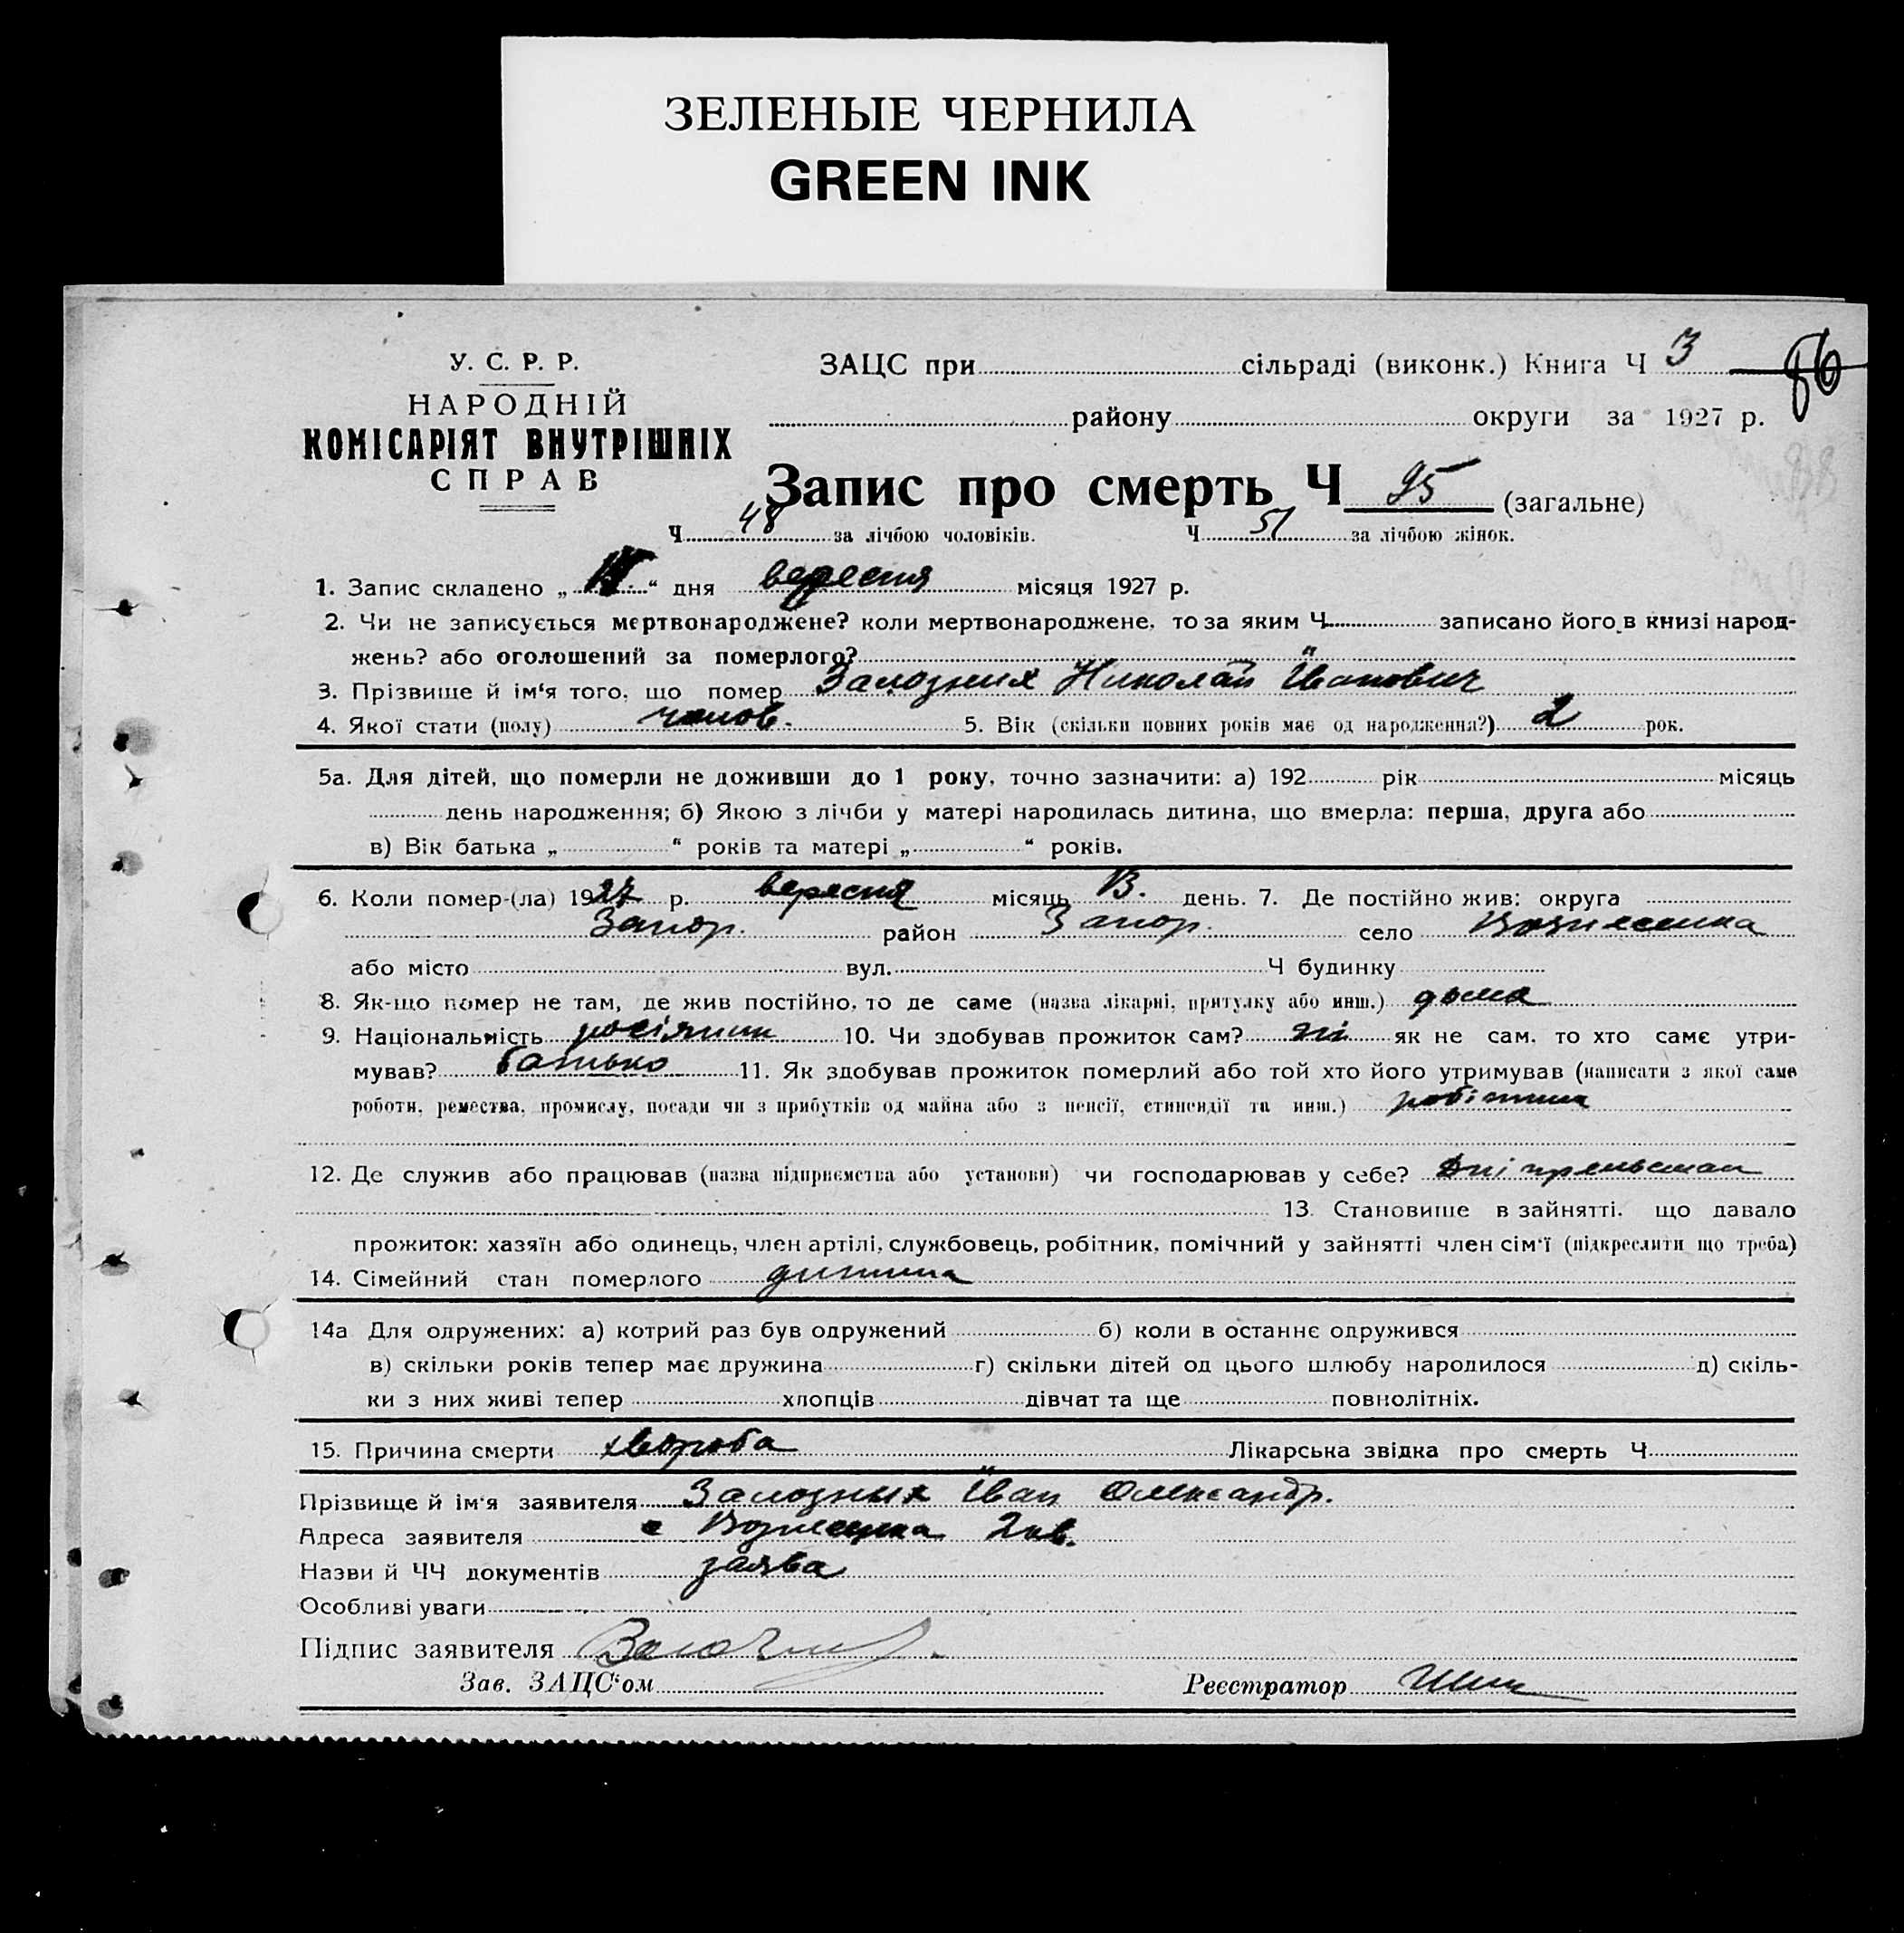 ЗЕЛЕНЫЕ ЧЕРНИЛА
GREEN INK
У. С. Р. Р.
НАРОДНІЙ
КОМІСАРІЯТ ВНУТРІШНІХ
СПРАВ
ЗАЦС при сільраді (виконк.) Книга Ч 3 86
району округи за 1927 р.
Запис про смерть Ч 95 (загальне)
Ч 48 за лічбою чоловіків. Ч 51 за лічбою жінок.
1. Запис складено „ “ дня вересня місяця 1927 р.
2. Чи не записується мертвонароджене? коли мертвонароджене, то за яким Ч записано його в книзі народ-
жень? або оголошений за померлого?
3. Прізвище й ім‘я того, що помер Залозних Николай Іванович
4. Якої стати (полу) чолов. 5. Вік (скільки повних років має од народження?) 2 рок.
5а. Для дітей, що померли не доживши до 1 року, точно зазначити: а) 192 рік місяць
день народження; б) Якою з лічби у матері народилась дитина, що вмерла: перша, друга або
в) Вік батька „ “ років та матері „ “ років.
6. Коли помер-(ла) 1927 р. вересня місяць 13. день. 7. Де постійно жив: округа
Запор. район Запор. село Вознесенка
або місто вул. Ч будинку
8. Як-що помер не там, де жив постійно, то де саме (назва лікарні, притулку або инш.) дома
9. Національність росіянин 10. Чи здобував прожиток сам? ні як не сам, то хто саме утри-
мував? батько 11. Як здобував прожиток померлий або той хто його утримував (написати з якої саме
роботи, ремества, промислу, посади чи з прибутків од майна або з пенсії, стипендії та инш.) робітник
12. Де служив або працював (назва підприємства або установи) чи господарював у себе?
13. Становище в зайнятті, що давало
прожиток: хазяїн або одинець, член артілі, службовець, робітник, помічний у зайнятті член сім‘ї (підкреслити що треба)
14. Сімейний стан померлого дитина
14а Для одружених: а) котрий раз був одружений б) коли в останнє одружився
в) скільки років тепер має дружина г) скільки дітей од цього шлюбу народилося д) скіль-
ки з них живі тепер хлопців дівчат та ще повнолітніх.
15. Причина смерти хвороба Лікарська звідка про смерть Ч
Прізвище й ім‘я заявителя Залозных Іван Олександр.
Адреса заявителя с Вознесенка 2 кв.
Назви й ЧЧ документів заява
Особливі уваги
Підпис заявителя
Зав. ЗАЦС‘ом Реєстратор